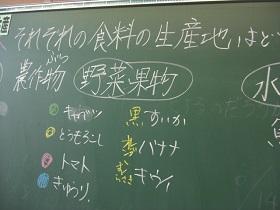 それぞれの食料の生産地はど
農作物 野菜果物 水
ぶつ
キャベツ 黒すいか
とうもろこし バナナ
トマト キウイ
きゅうり